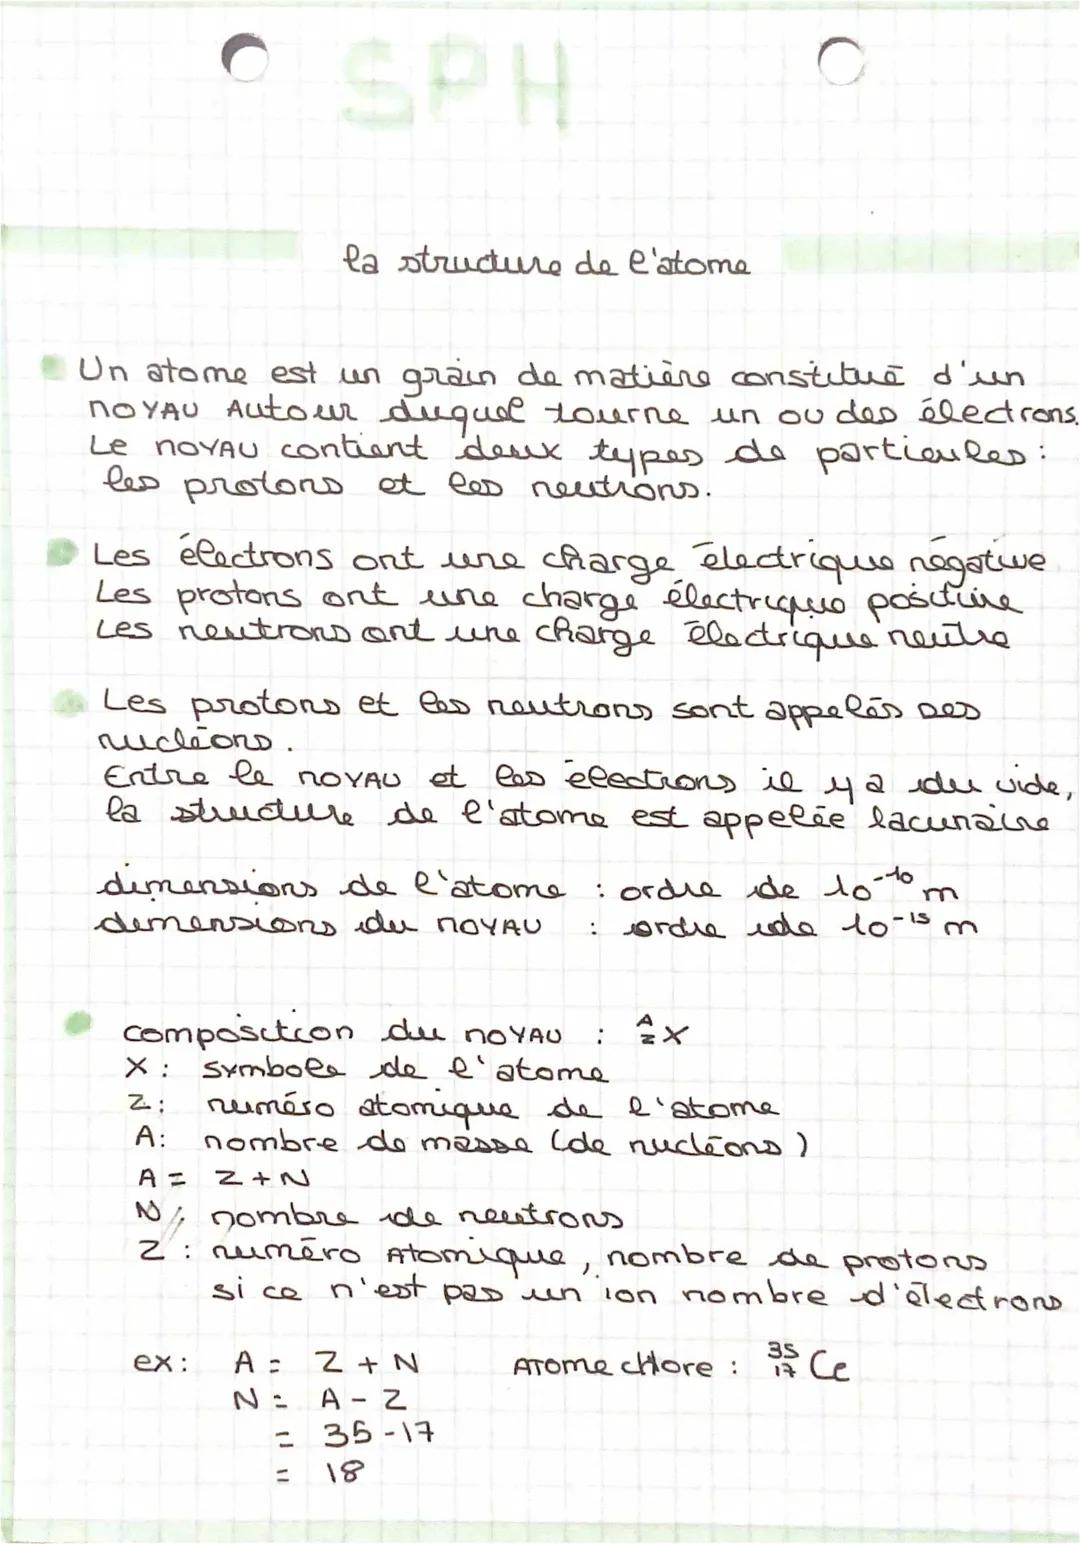 SPH
la structure de l'atome
Un atome est un grain de matière constitué d'un
noyau Autour duquel tourne un ou des électrons.
Le noyau contient deux types de particules :
les protons et les neutrons.
Les électrons ont une charge électrique négative
Les protons ont une charge électrique positive
Les neutrons ont une charge électrique neutre
Les protons et les neutrons sont appelés des
nucléons.
Entre le noyau et les électrons il y a du vide,
la structure de l'atome est appelée lacunaire
dimensions de l'atome : ordre de 10⁻¹⁰ m
dimensions du noyau : ordre de 10⁻¹⁵ m
composition du noyau : ᴬ_Z X
X : symbole de l'atome
Z : numéro atomique de l'atome
A : nombre de masse (de nucléons)
A = Z + N
N : nombre de neutrons
Z : numéro Atomique, nombre de protons
si ce n'est pas un ion nombre d'électrons
ex : A = Z + N Atome chlore : ³⁵₁₇Cl
N = A - Z
= 35 - 17
= 18